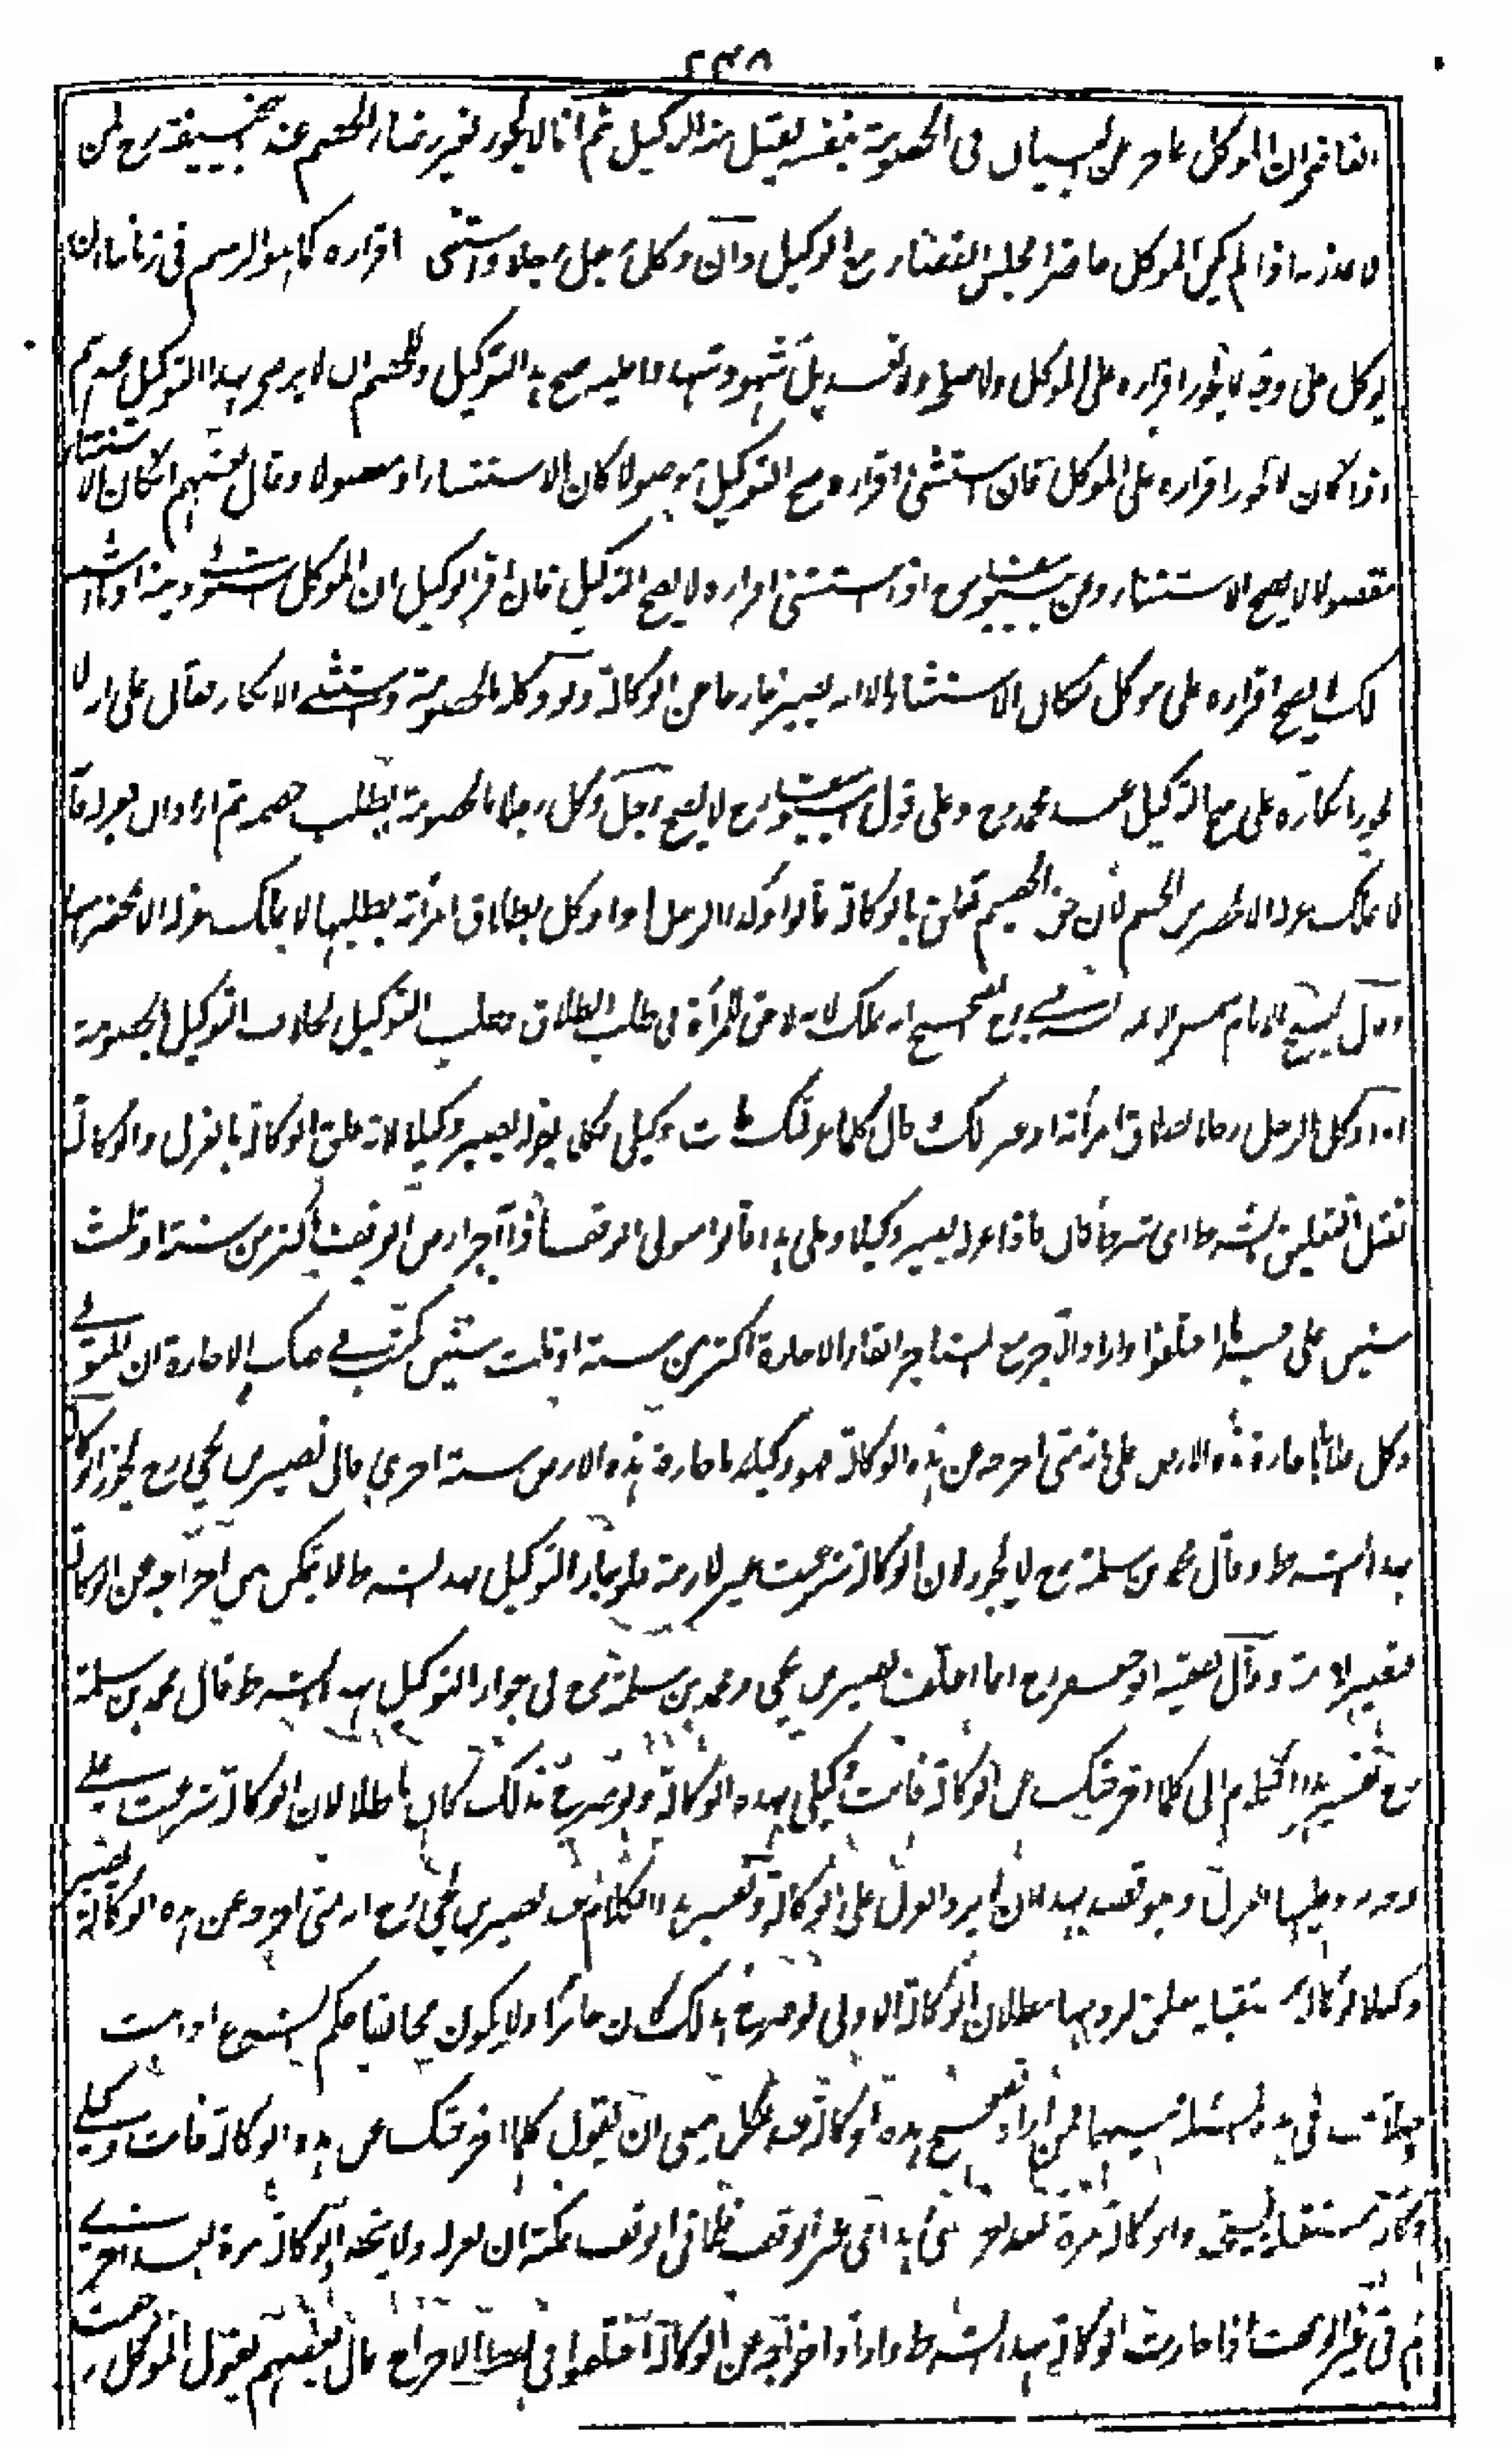 ٢٣٨
القاضي ان الموكل عاجز عن البيان في الخصومة بنفسه يقبل منه التوكيل ثم انما لا يجوز بغير رضاء الخصم عند ابي حنيفة رح لمن
لا عذر به اذا لم يكن الموكل حاضرا مجلس القضاء مع الوكيل وان وكل رجل رجلا واستثنى اقراره كما هو الرسم في زماننا ان
يوكل على وجه لا يجوز اقراره على الموكل ولا صلح ولا تعديل شهود تشهد بها عليه صح هذا التوكيل وللخصم ان لا يرضى بهذا التوكيل
اذا كان لا يجوز اقراره على الموكل فان استثنى اقراره صح التوكيل موصولا كان الاستثناء او مفصولا وقال بعضهم ان كان الاستثناء
مفصولا لا يصح الاستثناء وعن ابي يوسف رح اذا استثنى اقراره لا يصح التوكيل فان اقر الوكيل ان الموكل استوفى دينه او ما اشبه
ذلك لا يصح اقراره على موكله لمكان الاستثناء الا انه يصير خارجا من الوكالة ولو وكله بالخصومة واستثنى الانكار فقال على ان لا
يجوز انكاره على صح التوكيل عند محمد رح وعلى قول ابي يوسف رح لا يصح رجل وكل رجلا بالخصومة بطلب خصمه ثم اراد ان يعزله قالوا
لا يملك عزله الا بمحضر من الخصم لان حق الخصم تعلق بالوكالة قالوا وكذا الرجل اذا وكل بطلاق امرأته بطلبها لا يملك عزله الا بمحضر منها
وقال الشيخ الامام شمس الائمة السرخسي رح الصحيح انه يملك لانه لا حق للمرأة في طلب الطلاق وطلب التوكيل بخلاف التوكيل بالخصومة
اذا وكل الرجل رجلا بطلاق امرأته او غير ذلك وقال كلما عزلتك فانت وكيلي فكلما يعزله يصير وكيلا لانه علق الوكالة بالعزل والوكالة
تقبل التعليق بالشرط اي شرط كان فاذا عزله يصير وكيلا وعلى هذا قالوا متولي الوقف اذا آجر ارض الوقف اكثر من سنة او ثلث
سنين على حسب ما اختلفوا وارادوا الآجر مع المستاجر ابقاء الاجارة اكثر من سنة او ثلث سنين كتب في صك الاجارة ان المتولي
وكل فلانا باجارة هذه الارض على انه متى اخرجه من هذه الوكالة فهو وكيله باجارة هذه الارض سنة اخرى قال نصير بن يحيى رح يجوز الوكالة
بهذا الشرط وقال محمد بن سلمة رح لا يجوز لان الوكالة شرعت غير لازمة فلو جاز التوكيل بهذا الشرط لا يمكن من اخراجه عن الوكالة
فتصير لازمة وقال الفقيه ابو جعفر رح انما اختلف نصير بن يحيى ومحمد بن سلمة رح في جواز التوكيل بهذا الشرط قال محمد بن سلمة
رح تفسير هذا الكلام اني كلما اخرجتك من الوكالة فانت وكيلي بهذه الوكالة ولو صرح بذلك كان باطلا لان الوكالة شرعت على
ورود العزل وتفسير هذا الكلام عند نصير بن يحيى رح انه متى اخرجه عن هذه الوكالة يصير
وكيلا وكالة مستقبلة بطلان الوكالة الاولى لو صرح بذلك كان جائزا ولا يكون مخالفا حكم الشرع
في هذه المسألة فمن اراد تصحيح هذه الوكالة عند الكل ينبغي ان يقول كلما اخرجتك عن هذه الوكالة فانت وكيلي
وكالة مستقبلة والوكالة مرة بعد اخرى هذا في غير الوقف فاما في الوقف يمكنه ان يعزله ولا يتخذ الوكالة مرة بعد اخرى
ثم في غير الوقف اذا جازت الوكالة بهذا الشرط وارادوا اخراجه عن الوكالة اختلفوا في لفظ الاخراج قال بعضهم يقول الموكل رجعت